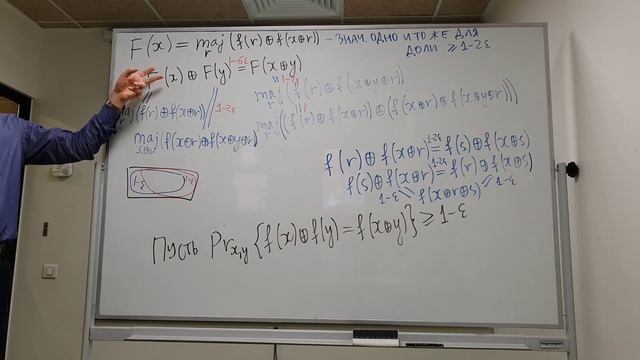 F(x) = maj_r (f(r)⊕f(x⊕r)) – ЗНАЧ. ОДНО И ТО ЖЕ ДЛЯ ДОЛИ ≥ 1-2ε
(x) ⊕ F(y) =^{1-6ε} F(x⊕y)
maj_r (f(r)⊕f(x⊕r)) // 1-2ε
maj_{x⊕r} (f(x⊕r)⊕f(x⊕y⊕r))
|| 1-2ε
maj_r (f(r)⊕f(x⊕y⊕r))
||
maj_r ((f(r)⊕f(x⊕r)) ⊕ (f(x⊕r)⊕f(x⊕y⊕r)))
f(r)⊕f(x⊕r) =^{1-2ε} f(s)⊕f(x⊕s)
f(s)⊕f(x⊕r) =^{1-2ε} f(r)⊕f(x⊕s)
1-ε \\ f(x⊕r⊕s) // 1-ε
1-ε 1-ε
Пусть Pr_{x,y} {f(x)⊕f(y) = f(x⊕y)} ≥ 1-ε